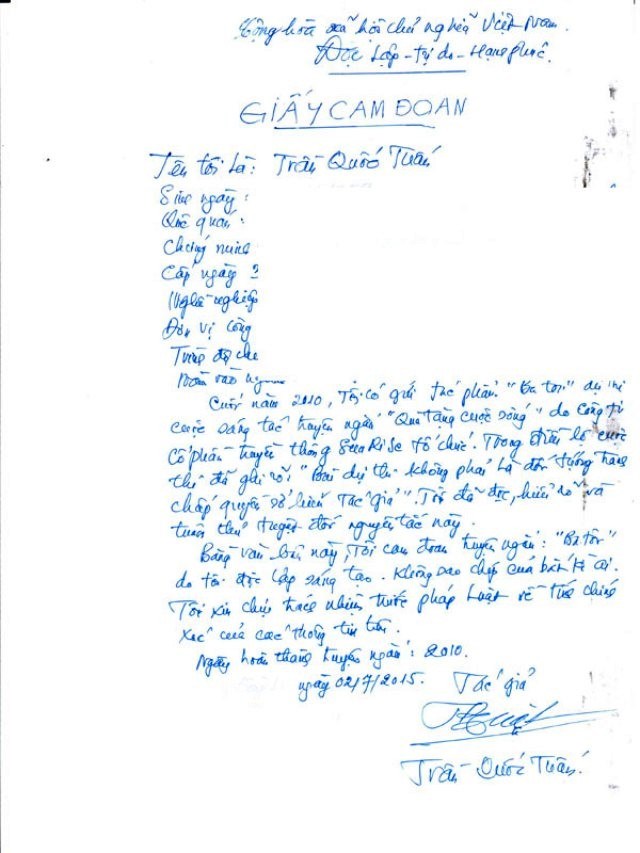 Cộng hòa xã hội chủ nghĩa Việt Nam
Độc Lập - Tự do - Hạnh phúc.
GIẤY CAM ĐOAN
Tên tôi là: Trần Quốc Tuấn
Sinh ngày:
Quê quán:
Chứng minh
Cấp ngày
Nghề nghiệp
Đơn vị công
Trình độ
Cuối năm 2010, Tôi có gửi tác phẩm "Ba tôi" dự thi
cuộc sáng tác truyện ngắn "Quà tặng cuộc sống" do công ty
Cổ phần truyền thông SunRise tổ chức. Trong điều lệ cuộc
thi đã ghi rõ: "Bài dự thi không phải là đối tượng tranh
chấp quyền sở hữu Tác giả" Tôi đã đọc, hiểu rõ và
tuân thủ tuyệt đối nguyên tắc này.
Bằng văn bản này, Tôi cam đoan truyện ngắn: "Ba tôi"
do tôi độc lập sáng tạo. Không sao chép của bất kì ai.
Tôi xin chịu trách nhiệm trước pháp luật về tính chính
xác của các thông tin trên.
Ngày hoàn thành truyện ngắn: 2010.
ngày 02/7/2015. Tác giả
Trần Quốc Tuấn